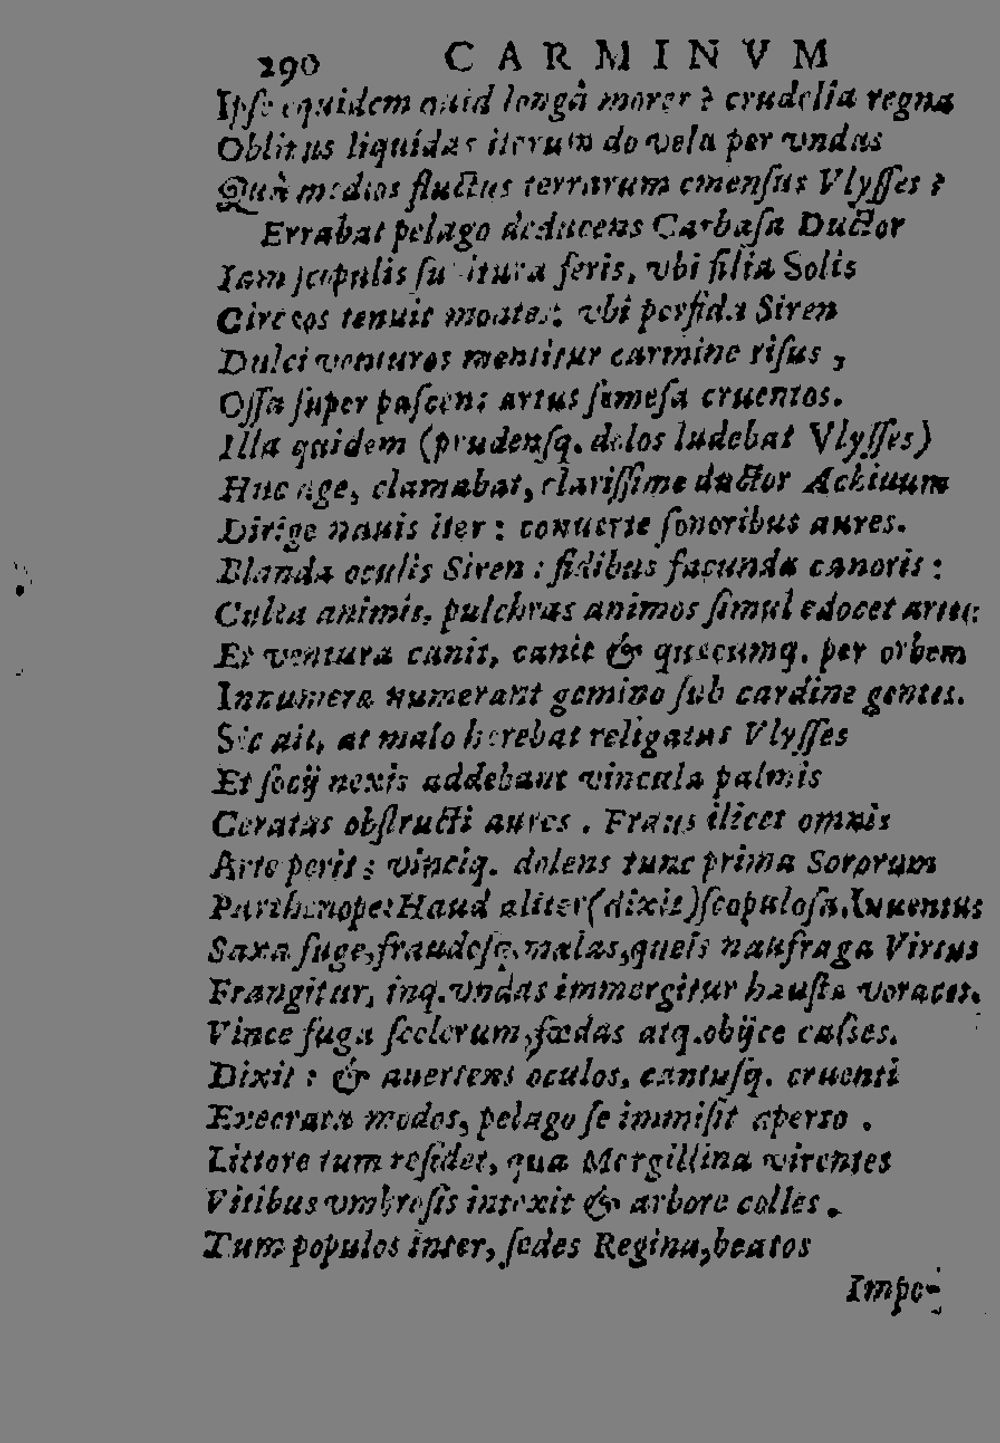 290 CARMINVM
Ipse equidem quid longâ moror? crudelia regna
Oblitus liquidas iterum do vela per vndas
Quà medios fluctus terrarum emensus Vlysses?
Errabat pelago deducens Carbasa Ductor
Iam scopulis feris, vbi filia Solis
Circeos tenuit montes: vbi perfida Siren
Dulci venturos mentitur carmine risus,
Ossa super pascens artus semesa cruentos.
Illa quidem (prudensq. dolos ludebat Vlysses)
Huc age, clamabat, clarissime ductor Achiuum
Dirige nauis iter: conuerte sonoribus aures.
Blanda oculis Siren: fidibus facunda canoris:
Culta animis, pulchras animos simul edocet artes:
Et ventura canit, canit & quæcumq. per orbem
Innumeræ numerant gemino sub cardine gentes.
Sic ait, at malo herebat religatus Vlysses
Et socij nexis addebant vincula palmis
Ceratas obstructi aures. Fraus ilicet omnis
Arte perit: vinciq. dolens tunc prima Sororum
Parthenope: Haud aliter (dixit) scopulosa Iuuentus
Saxa fuge, fraudesq. malas, queis naufraga Virtus
Frangitur, inq. vndas immergitur hausta voraces.
Vince fuga scelerum, fœdas atq. obijce casses.
Dixit: & auertens oculos, cantusq. cruenti
Execrata modos, pelago se immisit aperto.
Littore tum residet, qua Mergillina virentes
Vitibus vmbrosis intexit & arbore colles.
Tum populos inter, sedes Regina, beatos
Impe-